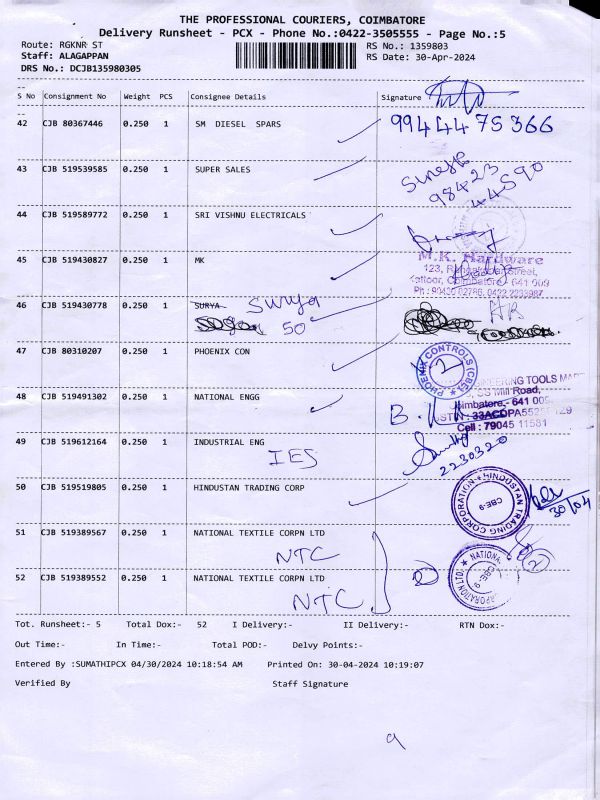 THE PROFESSIONAL COURIERS, COIMBATORE
Delivery Runsheet - PCX - Phone No.:0422-3505555 - Page No.:5
Route: RGKNR ST RS No.: 1359803
Staff: ALAGAPPAN RS Date: 30-Apr-2024
DRS No.: DCJB135980305
S No Consignment No Weight PCS Consignee Details Signature
42 CJB 80367446 0.250 1 SM DIESEL SPARS 9944475366
43 CJB 519539585 0.250 1 SUPER SALES Suresh
98423
44590
44 CJB 519589772 0.250 1 SRI VISHNU ELECTRICALS
45 CJB 519430827 0.250 1 MK M.K. Hardware
123, Street,
Kattoor, Coimbatore - 641 009
46 CJB 519430778 0.250 1 SURYA Surya
50
47 CJB 80310207 0.250 1 PHOENIX CON PHOENIX CONTROLS (CBE)
48 CJB 519491302 0.250 1 NATIONAL ENGG ENGINEERING TOOLS MART
SS Mill Road,
Coimbatore - 641
Cell : 79045 11581
49 CJB 519612164 0.250 1 INDUSTRIAL ENG
IES 2230320
50 CJB 519519805 0.250 1 HINDUSTAN TRADING CORP HINDUSTAN TRADING CORPORATION CBE-9
30/04
51 CJB 519389567 0.250 1 NATIONAL TEXTILE CORPN LTD
NTC
52 CJB 519389552 0.250 1 NATIONAL TEXTILE CORPN LTD
NTC
Tot. Runsheet:- 5 Total Dox:- 52 I Delivery:- II Delivery:- RTN Dox:-
Out Time:- In Time:- Total POD:- Delvy Points:-
Entered By :SUMATHIPCX 04/30/2024 10:18:54 AM Printed On: 30-04-2024 10:19:07
Verified By Staff Signature
9